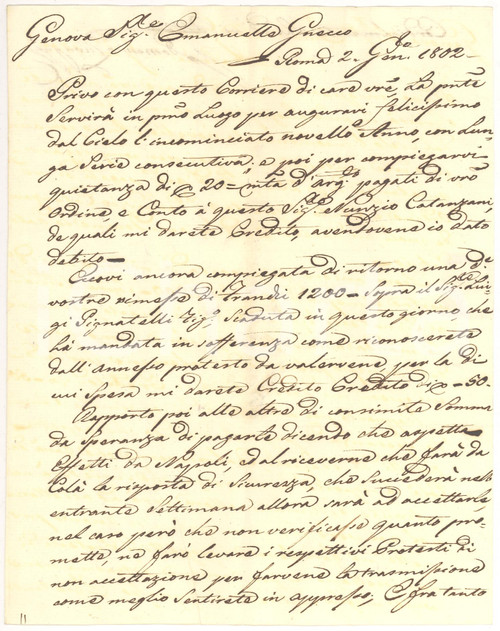 Genova Sig.re Emanuelle Gnecco
Roma 2. Gen.ro 1802
Privo con questo Corriere di care vre, La pnte
Servirà in pmo Luogo per augurarvi felicissimo
dal Cielo l'incominciato novello Anno, con Lun-
ga Serie consecutiva, e poi per compiegarvi
quietanza di 20= mta d'argto pagati di vro
Ordine, e Conto à questo Sig.re Nunzio Catanzani,
de quali mi darete Credito, avendovene io dato
debito—
Evvi ancora compiegata di ritorno una de
vostre rimesse di 1200— Sopra il Sig.re Lui-
gi Pignatelli Scaduta in questo giorno, che
hà mandata in sofferenza come riconoscerete
dall'annesso protesto da valervene per la di
cui Spesa mi darete Credito Credito di =50.
Rapporto poi alle altre di consimile Somma
da Speranza di pagarle dicendo che aspetta
Effetti da Napoli, ed al riceverne che farà da
Colà la risposta di Sicurezza, che Succederà nell'
entrante Settimana allora sarà ad accettarle,
nel caso però che non verificasse quanto pro-
mette, ne farò levare i respettivi Protesti di
non accettazione per farvene la trasmissione
come meglio Sentirete in appresso; E frà tanto
11